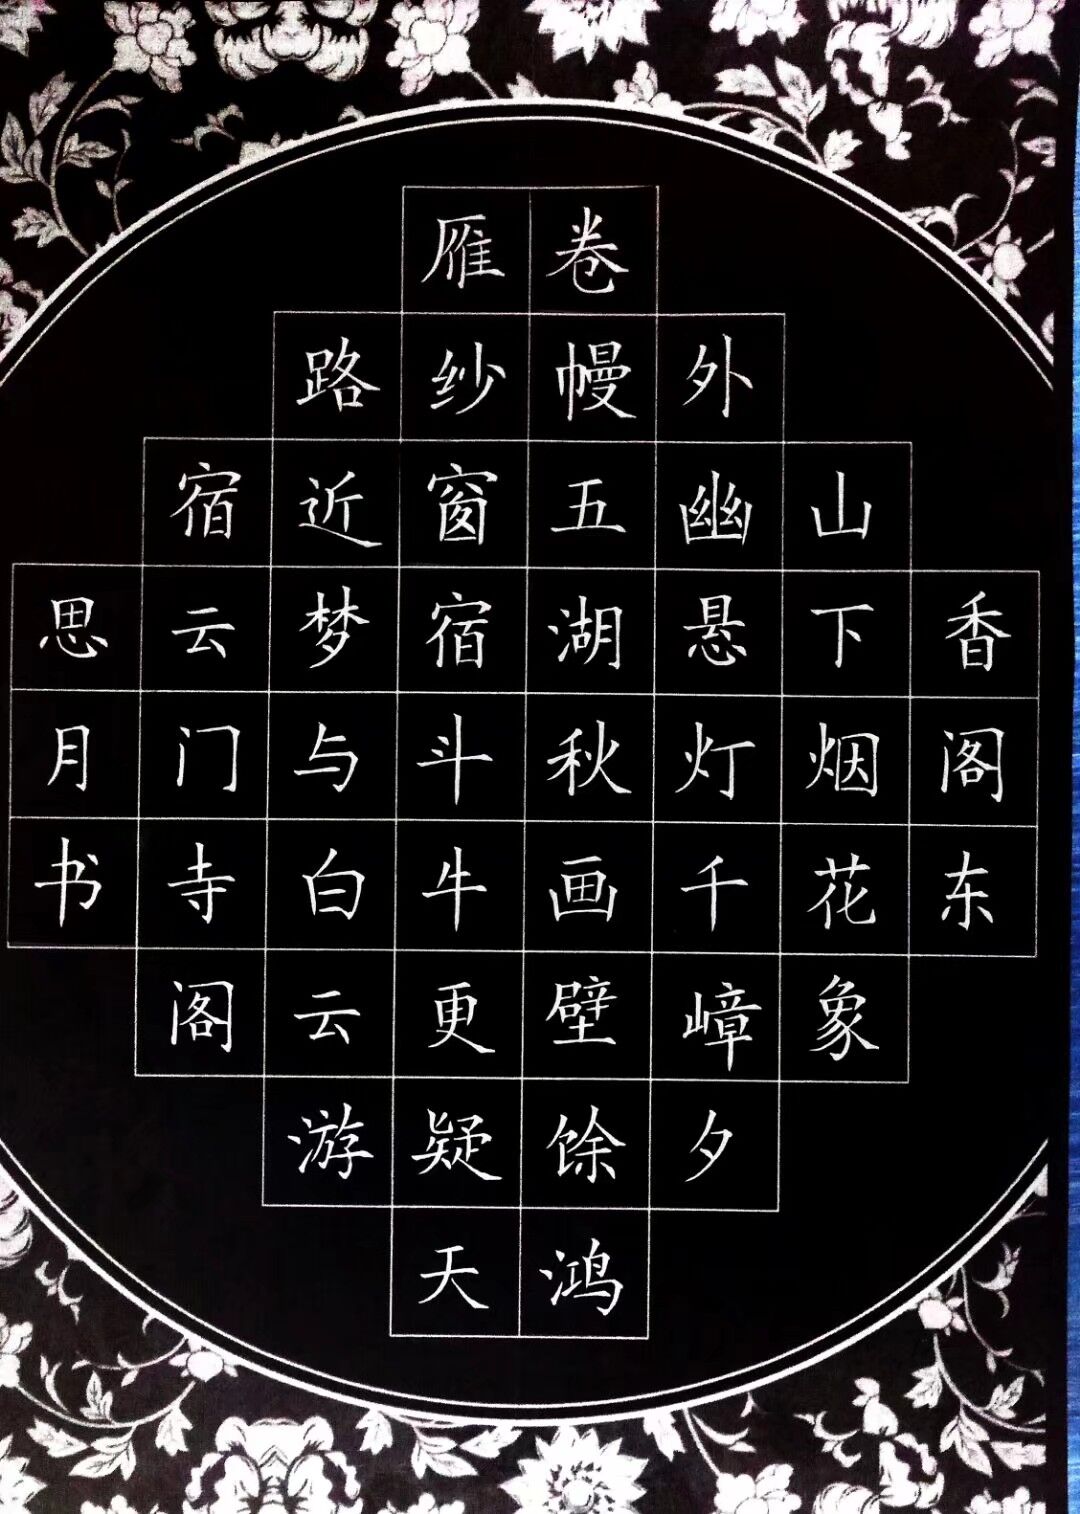 香阁东
山下烟花象
外幽悬灯千嶂夕
卷幔五湖秋画壁馀鸿
雁纱窗宿斗牛更疑天
路近梦与白云游
宿云门寺阁
思月书